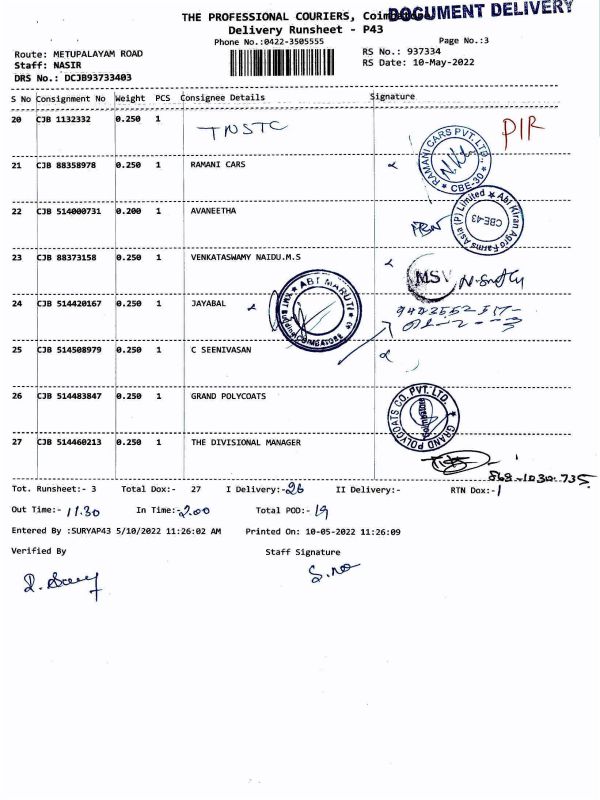 DOCUMENT DELIVERY
THE PROFESSIONAL COURIERS,
Delivery Runsheet - P43
Phone No.:0422-3505555 Page No.:3
Route: METUPALAYAM ROAD RS No.: 937334
Staff: NASIR RS Date: 10-May-2022
DRS No.: DCJB93733403
S No Consignment No Weight PCS Consignee Details Signature
20 CJB 1132332 0.250 1 TNSTC PIR
21 CJB 88358978 0.250 1 RAMANI CARS
RAMANI CARS PVT. LTD. ★ CBE-30 ★
22 CJB 514000731 0.200 1 AVANEETHA
Abi Kiran Agro Farms Asia (P) Limited ★ CBE-43
23 CJB 88373158 0.250 1 VENKATASWAMY NAIDU.M.S
MSV
24 CJB 514420167 0.250 1 JAYABAL
ABT MARUTI COIMBATORE
25 CJB 514508979 0.250 1 C SEENIVASAN
26 CJB 514483847 0.250 1 GRAND POLYCOATS
GRAND POLYCOATS CO. PVT. LTD. Coimbatore
27 CJB 514460213 0.250 1 THE DIVISIONAL MANAGER
Tot. Runsheet:- 3 Total Dox:- 27 I Delivery:- 26 II Delivery:- RTN Dox:- 1
Out Time:- 11.30 In Time:- 2.00 Total POD:- 19
Entered By :SURYAP43 5/10/2022 11:26:02 AM Printed On: 10-05-2022 11:26:09
Verified By Staff Signature